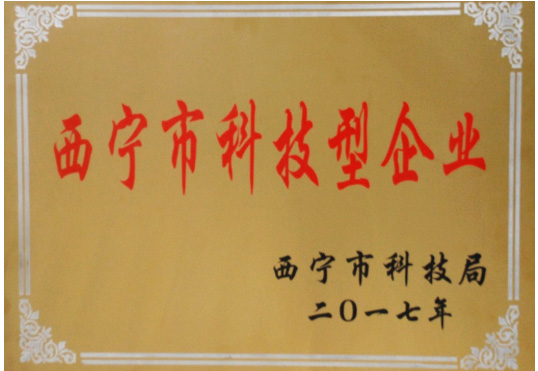 西宁市科技型企业
西宁市科技局
二〇一七年